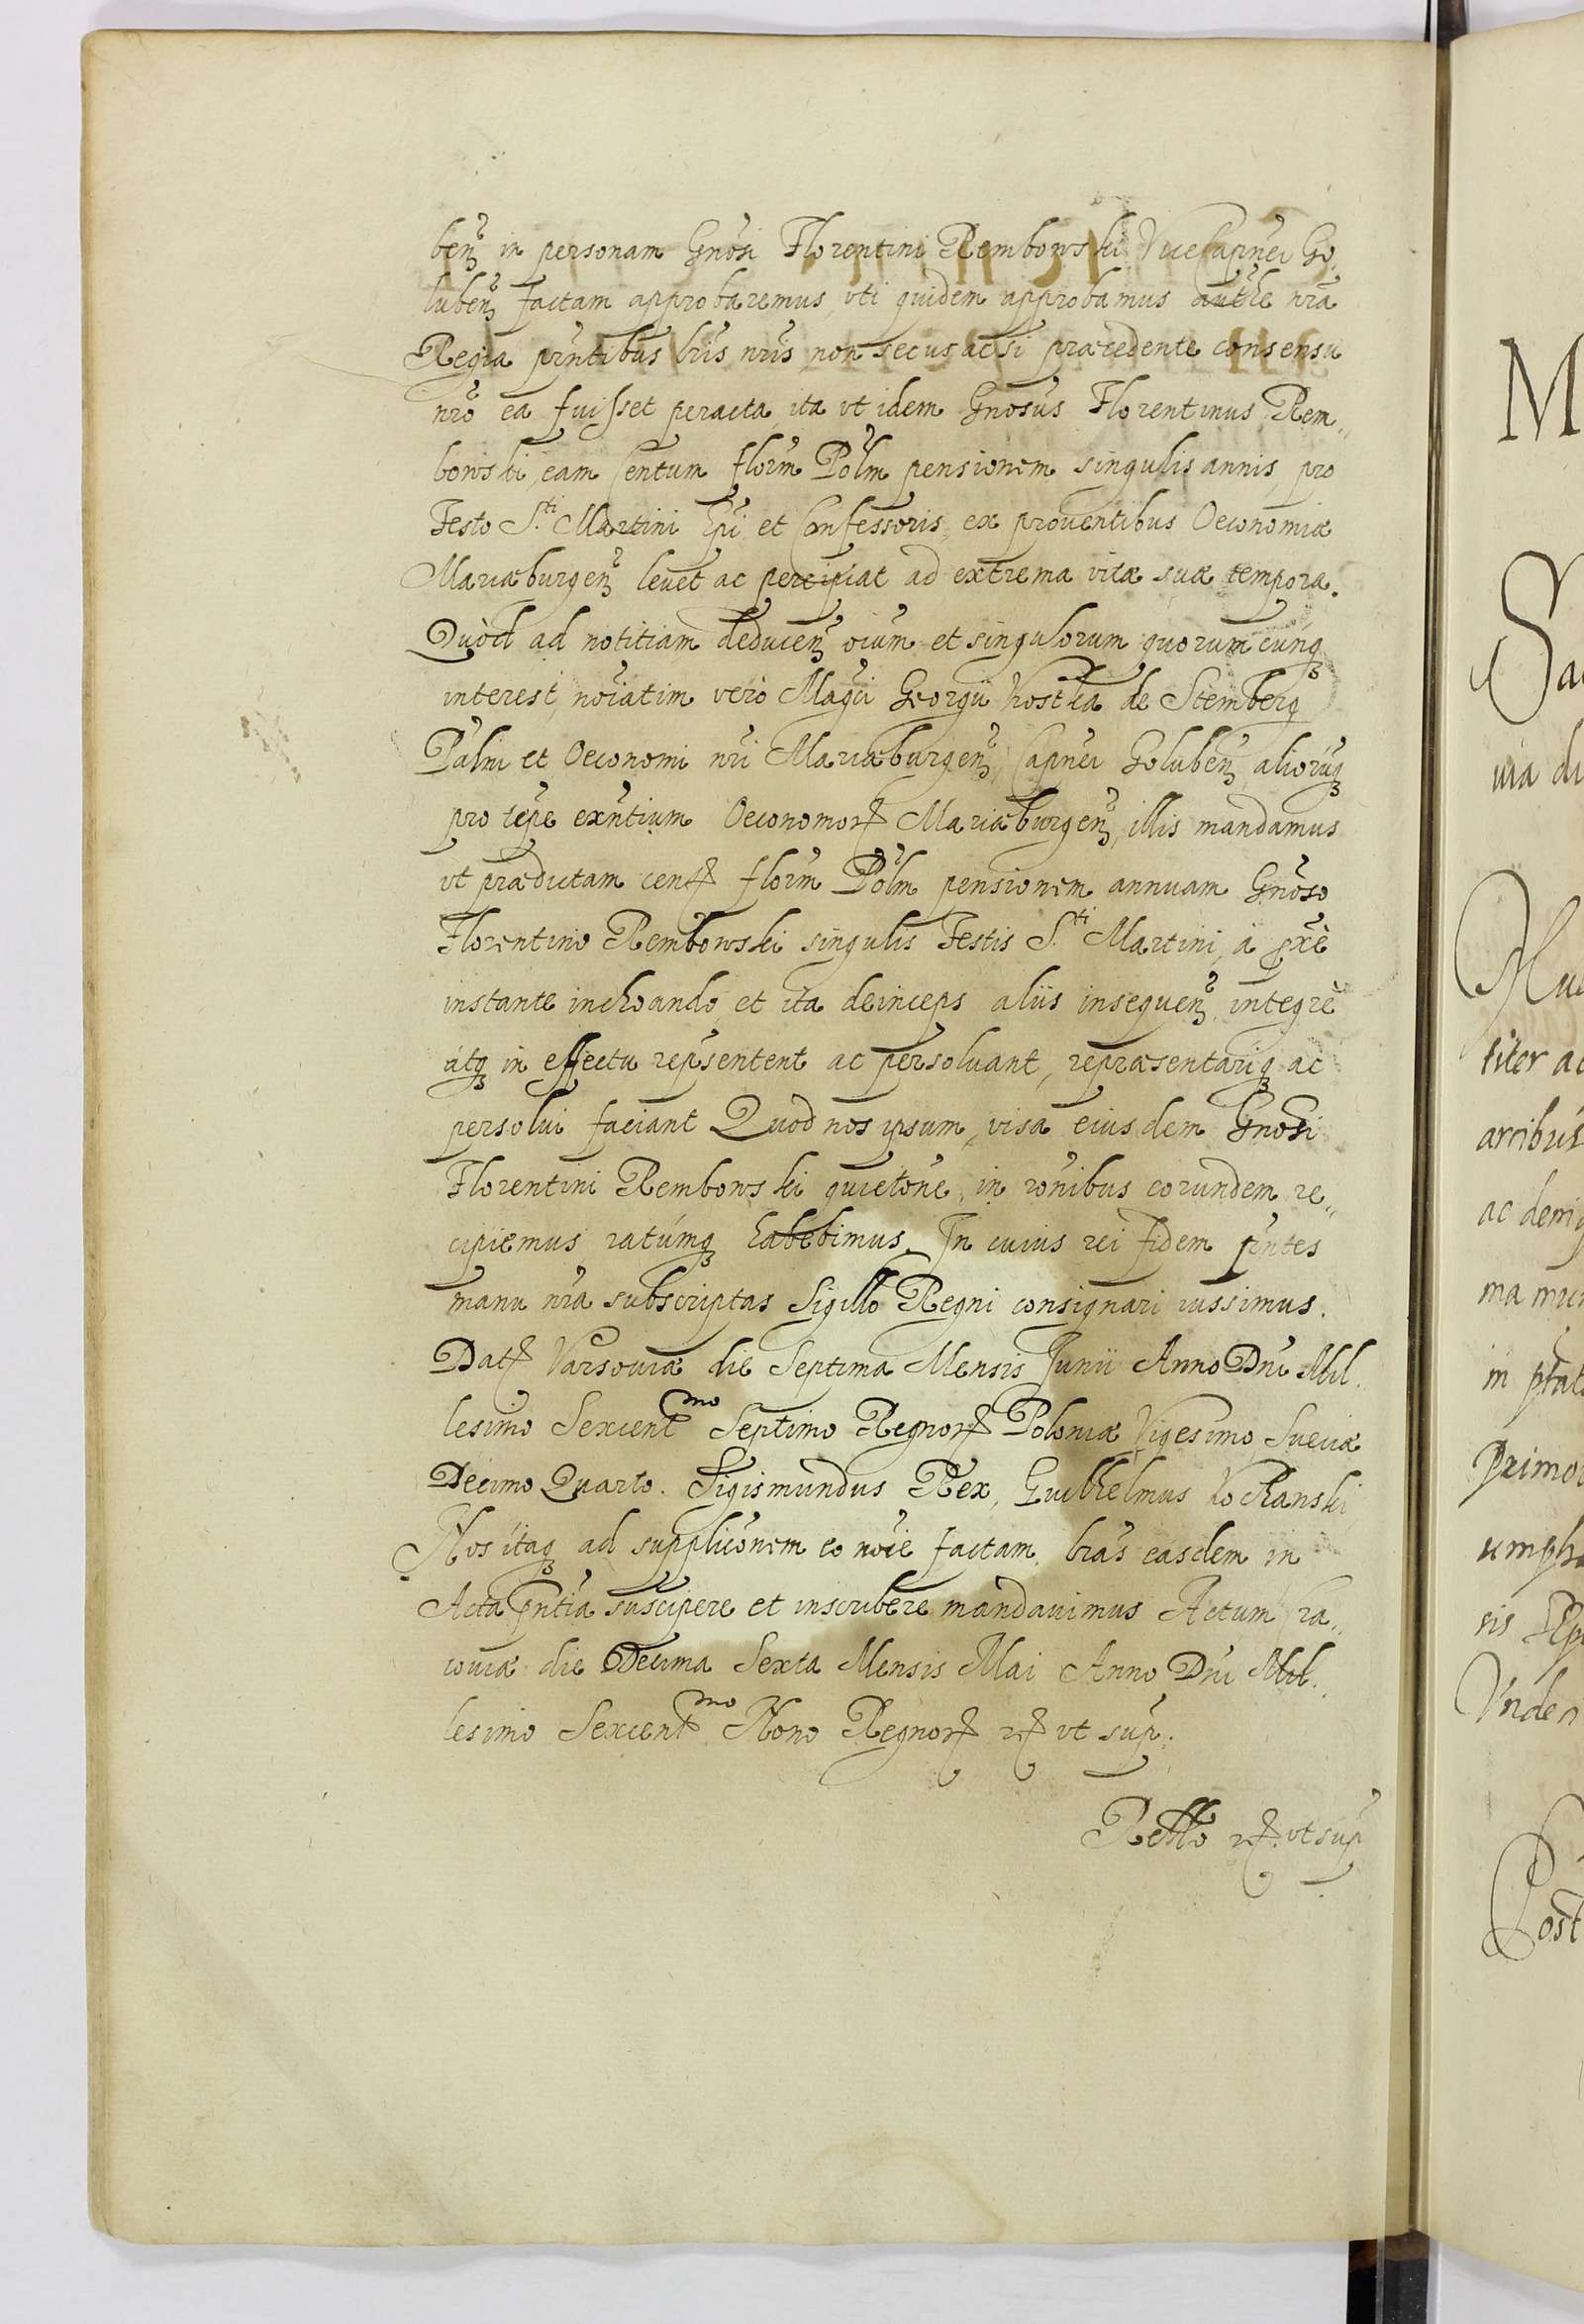 benꝫ in personam Gnosi Florentini Rembowski ViceCapnei Go,
lubenꝫ factam approbaremus, vti quidem approbamus authe nra
Regia pntibus lris nris, non secus ac si præcedente consensu
nro ea fuisset peracta, ita vt idem Gnosus Florentinus Rem,,
bowski, eam Centum florm Polm pensionem singulis annis, pro
Festo S.ti Martini Epi et Confessoris, ex prouentibus Oeconomiæ
Mariæburgenꝫ leuet ac percipiat ad extrema vitæ suæ tempora.
Quod ad notitiam deducenꝫ oium et singulorum quorum cunqꝫ
interest, noiatim vero Magci Georgii Kostka de Stemberg
Palni et Oeconomi nri Mariæburgenꝫ, Capnei Golubenꝫ aliorumqꝫ
pro tepe exntium Oeconomorꝝ Mariæburgenꝫ, illis mandamus
vt prædictam centꝝ florm Polm pensionem annuam Gnoso
Florentino Rembowski singulis Festis S.ti Martini, a pxe
instante inchoando, et ita deinceps aliis insequenꝫ integre
atqꝫ in effectu repsentent ac persoluant, repræsentariqꝫ ac
persolui faciant Quod nos ipsum, visa eiusdem Gnosi
Florentini Rembowski quietone, in ronibus eorundem re,,
cipiemus ratumqꝫ habebimus. In cuius rei fidem pntes
manu nra subscriptas Sigillo Regni consignari iussimus.
Datꝝ Varsouiæ die Septima Mensis Junii Anno Dni Mil,
lesimo Sexcentmo Septimo Regnorꝝ Poloniæ Vigesimo Sueciæ
Decimo Quarto. Sigismundus Rex, Guilhelmus Kochanski
Nos itaqꝫ ad supplicónem eo noie factam, lras easdem in
Acta pntia suscipere et inscribere mandauimus Actum Cra,,
couiæ die Decima Sexta Mensis Mai Anno Dni Mil,,
lesimo Sexcentmo Nono Regnorꝝ ꝛꝝ vt sup.
Rello ꝛꝝ. vt sup